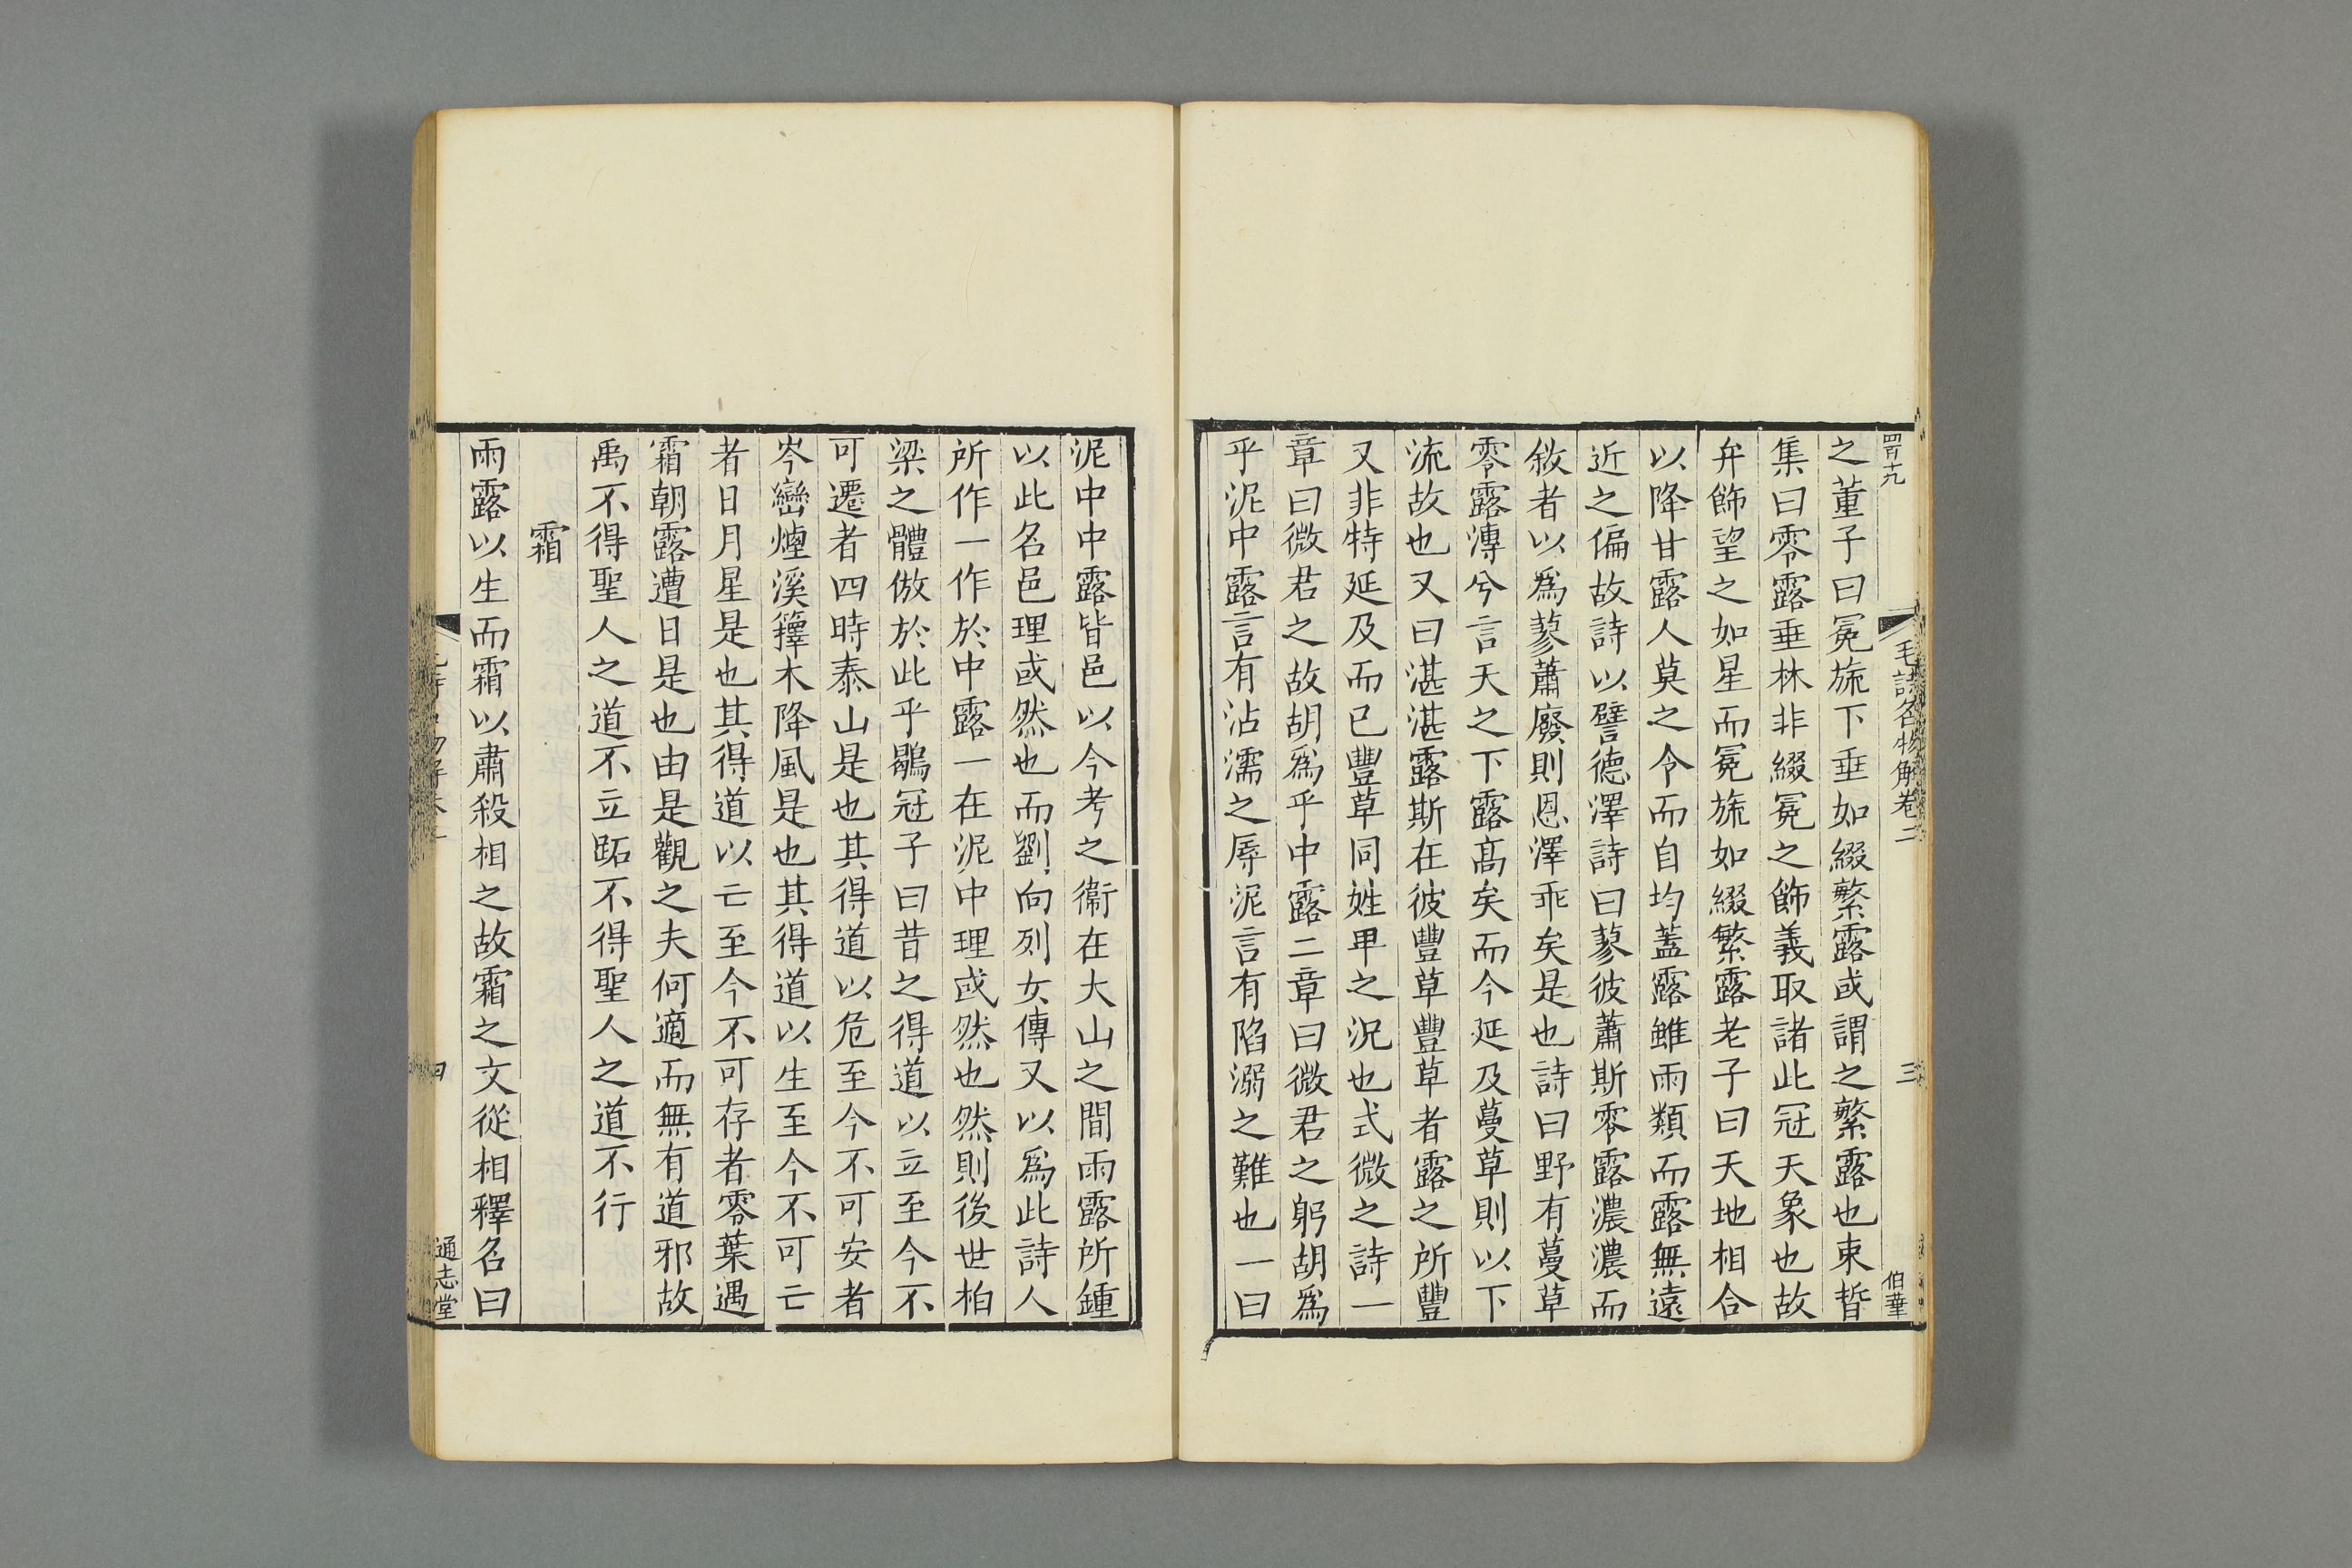 四百十九
毛詩名物解卷二
三
伯華
之董子曰冕旒下垂如綴繁露或謂之繁露也束晳
集曰零露垂林非綴冕之飾義取諸此冠天象也故
弁飾望之如星而冕旒如綴繁露老子曰天地相合
以降甘露人莫之令而自均蓋露雖雨類而露無遠
近之偏故詩以譬德澤詩曰蓼彼蕭斯零露濃濃而
敘者以為蓼蕭廢則恩澤乖矣是也詩曰野有蔓草
零露漙兮言天之下露高矣而今延及蔓草則以下
流故也又曰湛湛露斯在彼豐草豐草者露之所豐
又非特延及而已豐草同姓甲之況也式微之詩一
章曰微君之故胡為乎中露二章曰微君之躬胡為
乎泥中露言有沾濡之辱泥言有陷溺之難也一曰
泥中中露皆邑以今考之衞在大山之間雨露所鍾
以此名邑理或然也而劉向列女傳又以為此詩人
所作一作於中露一在泥中理或然也然則後世柏
梁之體倣於此乎鶡冠子曰昔之得道以立至今不
可遷者四時泰山是也其得道以危至今不可安者
岑巒煙溪籜木降風是也其得道以生至今不可亡
者日月星是也其得道以亡至今不可存者零葉遇
霜朝露遭日是也由是觀之夫何適而無有道邪故
禹不得聖人之道不立跖不得聖人之道不行
霜
雨露以生而霜以肅殺相之故霜之文從相釋名曰
通志堂